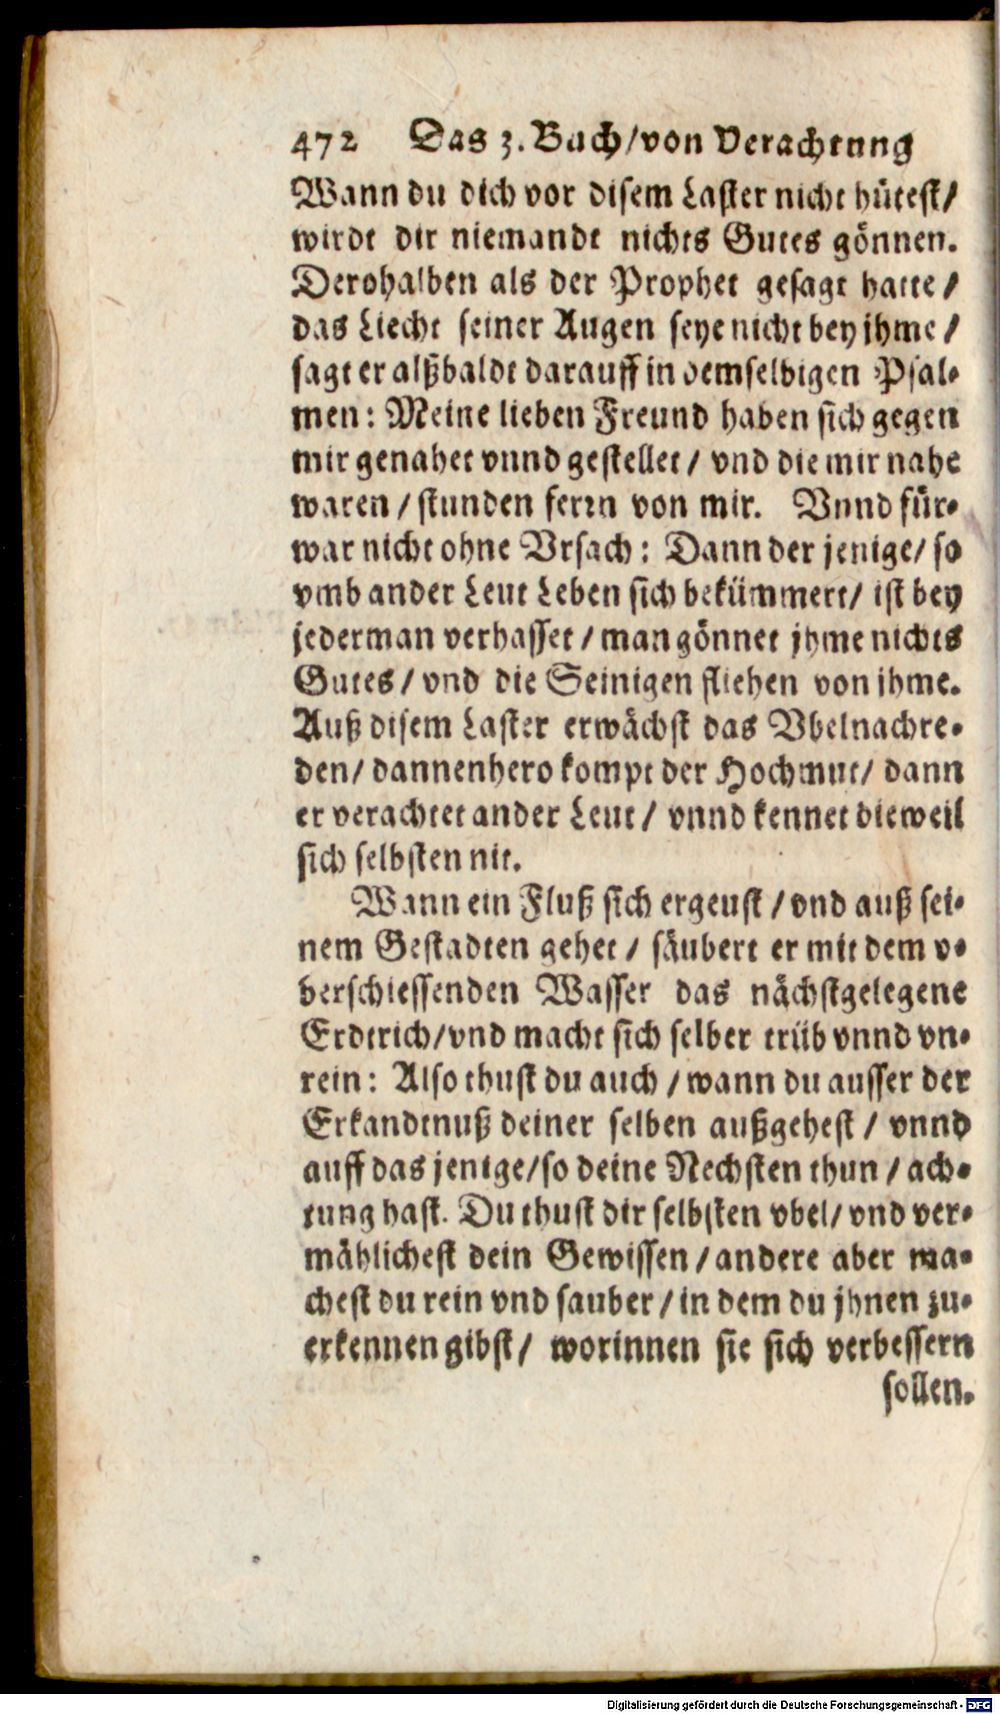 472 Das 3. Buch/von Verachtung
Wann du dich vor disem Laster nicht hütest/
wirdt dir niemandt nichts Gutes gönnen.
Derohalben als der Prophet gesagt hatte/
das Liecht seiner Augen seye nicht bey jhme/
sagt er alßbaldt darauff in demselbigen Psal-
men: Meine lieben Freund haben sich gegen
mir genahet vnnd gestellet/ vnd die mir nahe
waren/ stunden ferrn von mir. Vnnd für-
war nicht ohne Vrsach: Dann der jenige/ so
vmb ander Leut Leben sich bekümmert/ ist bey
jederman verhasset/ man gönnet jhme nichts
Gutes/ vnd die Seinigen fliehen von jhme.
Auß disem Laster erwächst das Vbelnachre-
den/ dannenhero kompt der Hochmut/ dann
er verachtet ander Leut/ vnnd kennet dieweil
sich selbsten nit.
Wann ein Fluß sich ergeust/ vnd auß sei-
nem Gestadten gehet/ säubert er mit dem v-
berschiessenden Wasser das nächstgelegene
Erdtrich/vnd macht sich selber trüb vnnd vn-
rein: Also thust du auch/ wann du ausser der
Erkandtnuß deiner selben außgehest/ vnnd
auff das jenige/so deine Nechsten thun/ ach-
tung hast. Du thust dir selbsten vbel/ vnd ver-
mählichest dein Gewissen/ andere aber ma-
chest du rein vnd sauber/ in dem du jhnen zu-
erkennen gibst/ worinnen sie sich verbessern
sollen.
Digitalisierung gefördert durch die Deutsche Forschungsgemeinschaft - DFG